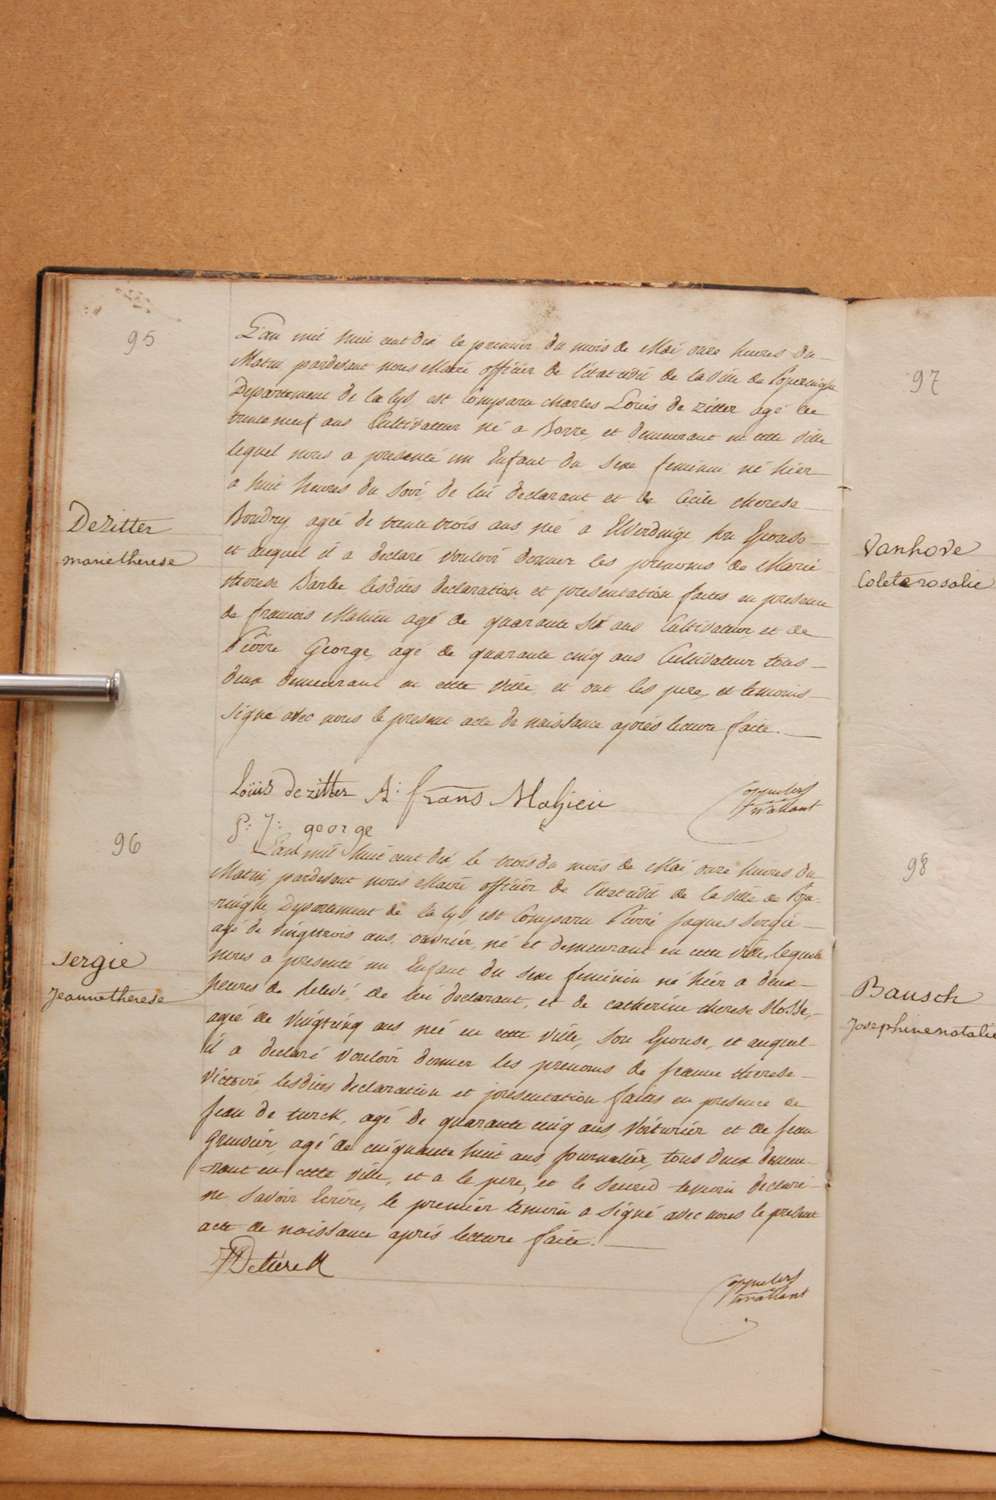 95
Dezitter
marietherese
L'an mil huit cent dix le premier du mois de Mai onze heures du
Matin pardevant nous Maire officier de l'etat civil de la ville de Poperinghe
Departement de la Lys est Comparu Charles Louis de Zitter agé de
trente neuf ans Cultivateur né a Borre, et demeurant en cette ville
lequel nous a presenté un Enfant du sexe feminin né hier
a huit heures du Soir, de lui declarant et de Cecile therese
Boudry agée de trente trois ans née a Elverdinge son Epouse
et auquel il a declaré vouloir donner les prenoms de Marie
therese Barbe lesdites declaration et presentation faites en presence
de francois Mahieu agé de quarante six ans Cultivateur et de
Pierre George, agé de quarante cinq ans Cultivateur tous
deux demeurant en cette ville, et ont les pere, et temoins
signé avec nous le present acte de naissance aprés lecture faite.
Louis dezitter A: frans Mahieu
P: J: george
96
Sergie
Jeannetherese
L'an mil huit cent dix le trois du mois de Mai onze heures du
Matin, pardevant nous Maire officier de l'etat civil de la ville de Pope
ringhe, Departement de la Lys, est Comparu Pierre Jaques Sergie
agé de vingt trois ans, ouvrier, né et demeurant en cette ville, lequel
nous a presenté un Enfant du sexe feminin né hier a deux
heures de relevé, de lui declarant, et de catherine therese
agée de vingt cinq ans née en cette ville, son Epouse, et auquel
il a declaré vouloir donner les prenoms de jeanne therese
Victoire lesdites declaration et presentation faites en presence de
jean de turck, agé de quarante cinq ans Voiturier et de jean
agé de cinquante huit ans, journalier, tous deux demeu
rant en cette ville, et a le pere, et le second temoin declaré
ne savoir Ecrire, le premier temoin a signé avec nous le present
acte de naissance aprés lecture faite.
97
Vanhove
Colete rosalie
98
Bausch
Josephine natalie